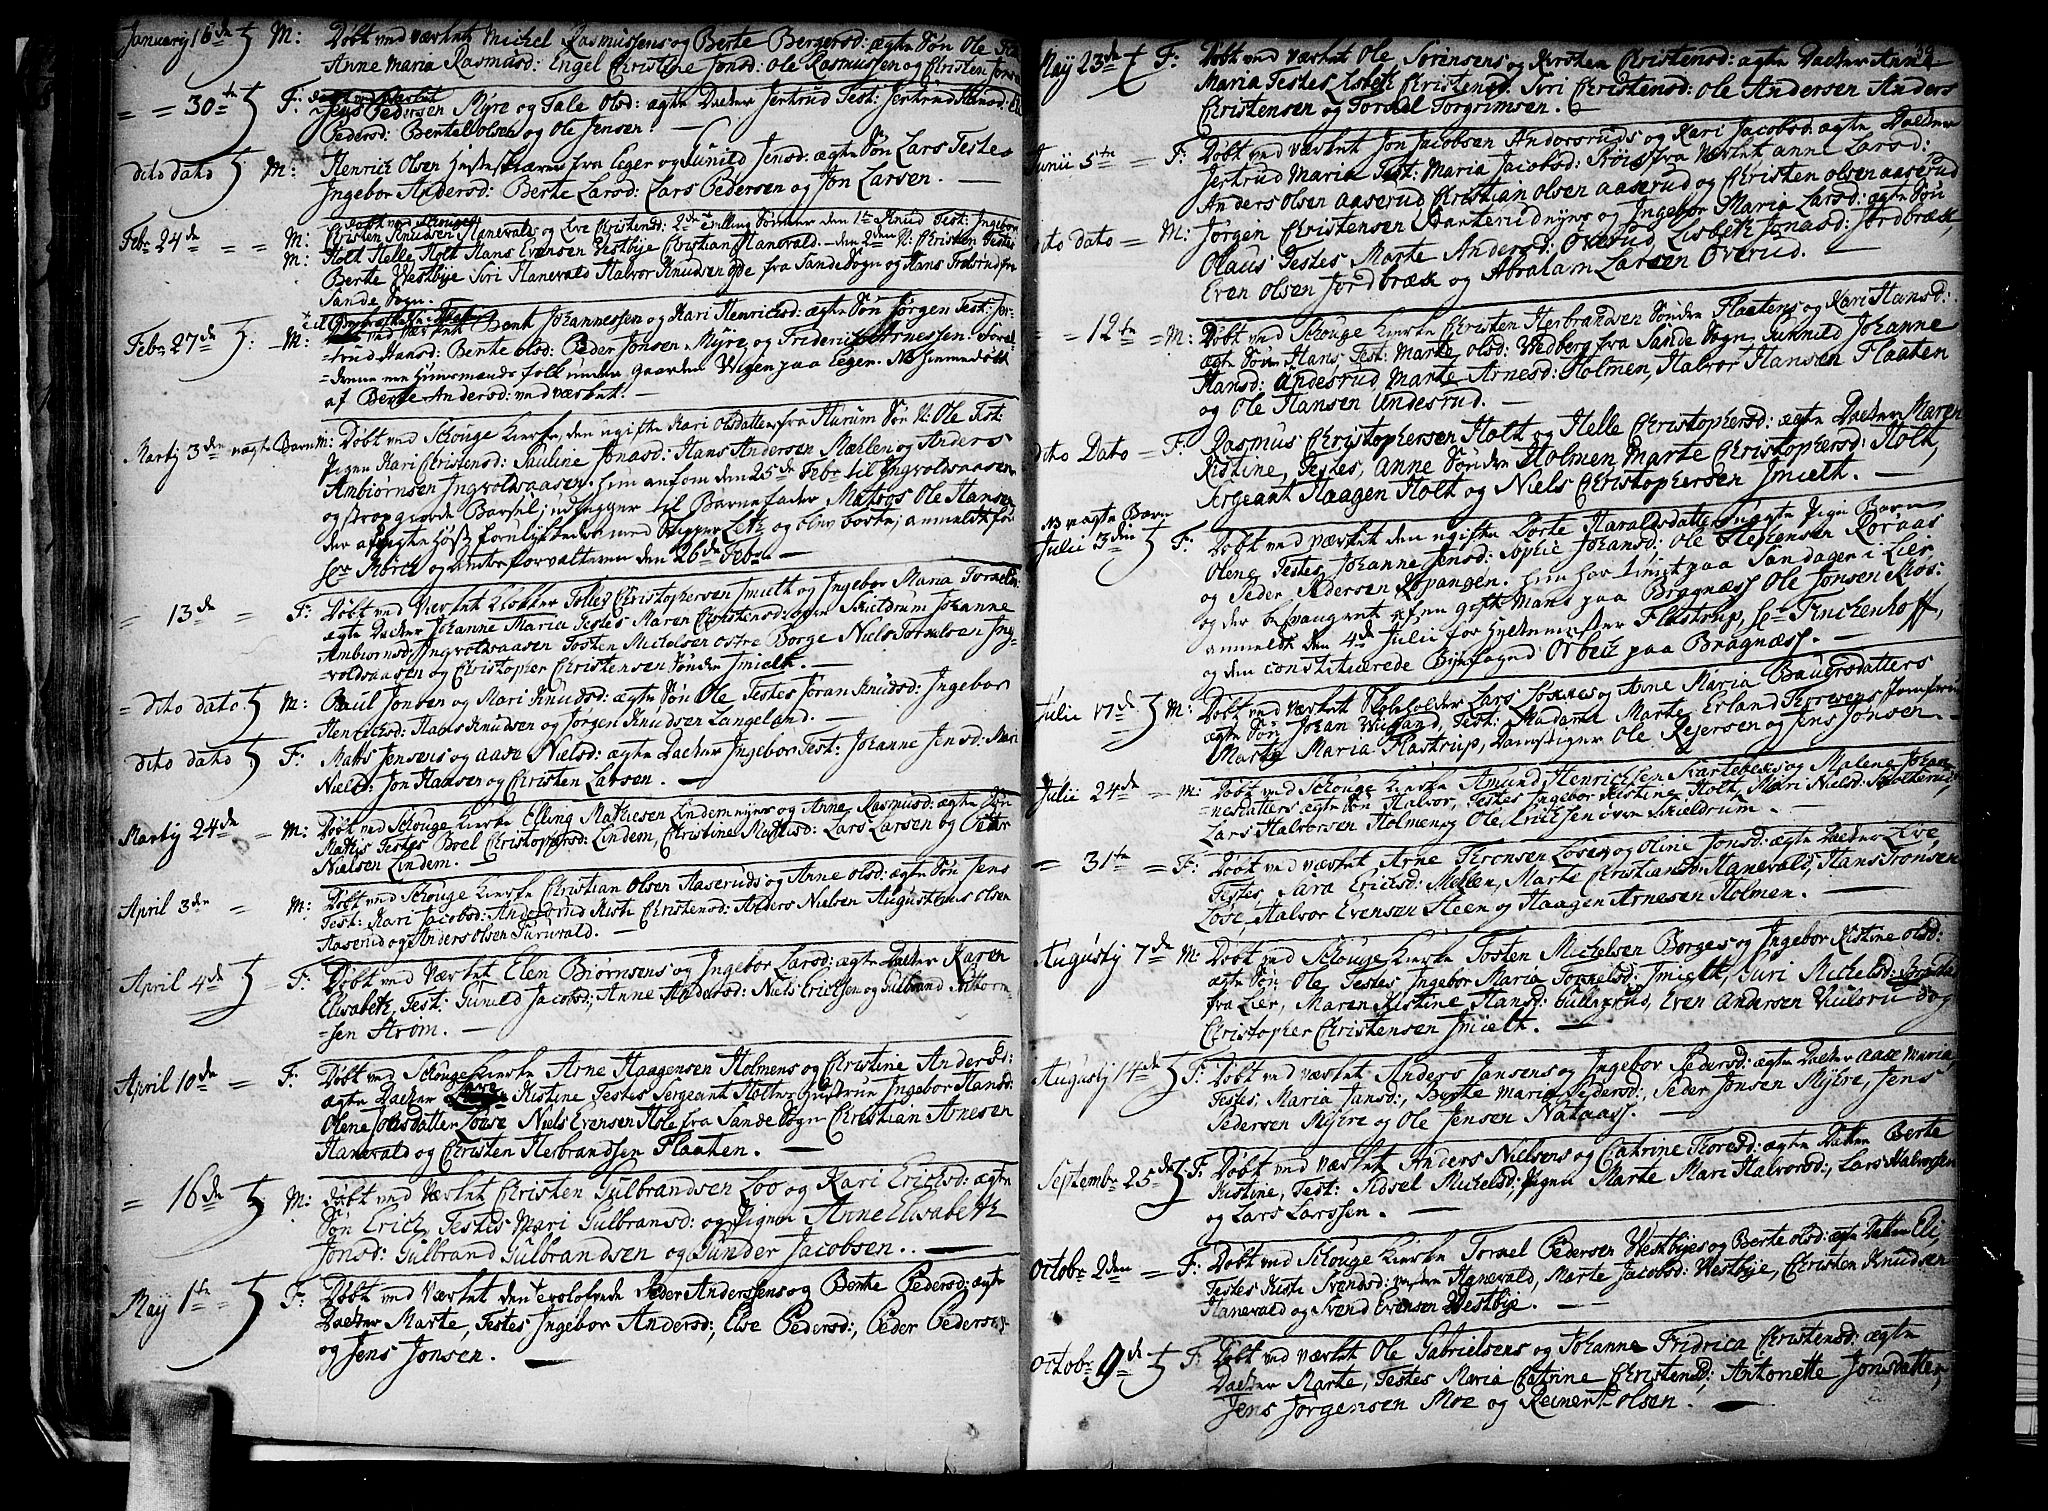 January 16de M: Døbt ved værket Michel Rasmussens og Berte Bergersd: ægte Søn Ole
Anne Maria Rasmusd: Engel Christine Jonsd: Ole Rasmussen og Christen Jonsen
= = 30te F: døbt ved værket
Jens Pedersen Myre og Tale Olsd: ægte Datter Jertrud Test: Jertrud
Pedersd: Bertel Olsen og Ole Jensen. —
dito dato M: Henrick Olsen fra Eger og Gunild Jensd: ægte Søn Lars Testes
Ingebor Andersd: Berte Larsd: Lars Pedersen og Jon Larsen. —
Febr 24de = = M: døbt ved Schouger
Christen Knudsen Hanevalds og Live Christensd: 2de tvilling Sønner den 1te Knud Test: Ingebor
M: Holt Helle Holt Hans Evensen Vestbÿe Christian Hanevald. — den 2den N: Christen Testes
Berte Westbÿe Siri Hanevald Halvor Knudsen fra Sande Sogn og Hans fra
Sande Sogn.
Febr 27de M: ved værket Bent Johannessen og Kari Henricksd: ægte Søn Jørgen Test: Jer-
=trud Hansd: Berte Olsd: Peder Jonsen Myre og Friderich Arnessen. Foræl-
=drene ere Huusmands folk under gaarden Wigen paa Eger. NB hjemmedøbt
af Berte Andersd: ved værket. —
Martÿ 3de uægte Barn M: Døbt ved Schouge kirke, den ugifte Kari Olsdatter fra Hurum Søn N: Ole Test:
Pigen Kari Christensd: Pauline Jonasd: Hans Andersen Mælen og Anders
Ambiørnsen Ingvoldsaasen. hun ankom den 25de Febr til Ingvoldsaasen
og strax giorde Barsel; udlægger til Barnefader Matros Ole Hansen
der afvigte Høst med Skipper og blev borte; anmeldt for
Morch og den 26de Febr. —
= 13de = F: Døbt ved Værket Klokker Tollef Christophersen Smieth og Ingebor Maria
ægte Datter Johanne Maria Testes Maren Christensd: øvre Skieldrum Johanne
Ambiørnsd: Ingvoldsaasen Tosten Michelsen østre Borge Niels Ing-
voldsaasen og Christopher Christensen Sønder Smieth. —
= dito dato M: Poul Jonsen og Mari Knudsd: ægte Søn Ole Testes Jøran Knudsd: Ingebor
Henricksd: Hans Knudsen og Jørgen Knudsen Langeland. —
dito dato F: Mats Jensens og Aase Nielsd: ægte Datter Ingebor Test: Johanne Jensd: Mari
Nielsd: Jon Hansen og Christen Larsen. —
Martÿ 24de = M: Døbt ved Schouge kirke Elling Mathiesen Lindem nÿns og Anne Rasmusd: ægte Søn
Mathis Testes Boel Christophersd: Lindem, Christine Mathisd: Lars Larsen og Peder
Nielsen Lindem. —
April 3de = M: Døbt ved Schouge kirke Christian Olsen Aaseruds og Anne Olsd: ægte Søn Jens
Test: Kari Jacobsd: Andersrud Kisti Christensd: Anders Nielsen Augustinus Olsen
Aaserud og Anders Olsen Turuvald. —
April 4de = F: Døbt ved Værket Elen Biørnsens og Ingebor Larsd: ægte Datter Karen
Elisabeth, Test: Gunild Jacobsd; Anne Andersd: Niels Ericksen og Gulbrand
=sen Strøm. —
April 10de = F: Døbt ved Schouge kirke Arne Haagensen Holmens og Christine Andersd:
ægte Datter Kistine Testes Sergeant Ingebor Hansd:
Olene Jonsdatter Løse Niels Evensen Hole fra Sande Sogn Christian Arnesen
Hanevald og Christen Herbrandsen Flaaten. —
= 16de M: Døbt ved Værket Christen Gulbrandsen Loo og Kari Ericksd: ægte
Søn Erick, Testes Mari Gulbransd: og Pigen Anne Elisabeth
Jonsd: Gulbrand Gulbrandsen og Gunder Jacobsen. —
Maÿ 1te F: Døbt ved Værket den trolofvede Peder Anderssens og Berte Pedersd: ægte
Datter Marte, Testes Ingebor Andersd:, Else Pedersd:, Peder Pedersen
og Jens Jonsen. —
39
Maÿ 23de F: Døbt ved værket Ole Sørensens og Kirsten Christensd: ægte Datter Anne
Maria Testes Lisbeth Christensd: Siri Christensd: Ole Andersen Anders
Christensen og Tormel Torgrimsen. —
Junii 5te = F: Døbt ved værket Jon Jacobsen Andersruds og Kari Jacobsd: ægte Datter
Jertrud Maria Test: Maria Jacobsd: fra Værket Anne Larsd:
Anders Olsen Aaserud Christian Olsen Aaserud og Christen Olsen Aaserud
dito dato = M: Jørgen Christensen Hanterud nÿns og Ingebor Maria Larsd: ægte Søn
Olaus Testes Marte Andersd: Overud, Lisbeth Jonasd: Jordbræk,
Even Olsen Jordbræk og Abraham Larsen Overud. —
= = 12te = M: Døbt ved Schouge kirke Christen Herbrandsen Sønder Flaatens og Kari Hansd:
ægte Søn Hans, Test: Marte Olsd: Wedberg fra Sande Sogn, Gunnild Johanne
Hansd: Andesrud, Marte Arnesd: Holmen, Halvor Hansen Flaaten
og Ole Hansen Undesrud. —
dito Dato = F: Rasmus Christophersen Holt og Helle Christophersd: ægte Datter Maren
Kistine, Testes, Anne Sønder Holmen Marte Christophersd: Holt,
Sergeant Haagen Holt og Niels Christophersen Smieth. —
NB uægte Barn
Julii 3die F: Døbt ved værket den ugifte Dorte Haraldsdatters uægte Pige Barn
Olene Testes, Johanne Jensd: Sophie Johansd: Ole Stephensen Koraas
og Peder Pedersen Kopangen. hun har tient paa Landager i Lier
og der besvangret af en gift Mand paa Bragnæss Ole Jonsen
anmeldt den 4de Julii for Hÿttemester Flostrup, Hr Finckenhoff,
og den constituerede Bÿefoged Orbech paa Bragnæss. —
Julii 17de M: Døbt ved værket Lars Løkkes og Anne Maria Bauersdatters
ægte Søn Johan Wiigand, Test: Madame Marte Erland Jomfrue
Marte Maria Flostrup, Ole Rejersen og Jens Jonsen. —
Julii 24de = M: Døbt ved Schouge kirke Amund Henricksen Svartebeks og Malene Johan-
nesdatters ægte Søn Halvor, Testes Ingebor Kistine Holt, Mari Nielsd:
Lars Halvorsen Holmen og Ole Ericksen øvre Skieldrum. —
= 31te = F: Døbt ved værket Arne Thronsen Løses og Oline Jonsd: ægte Datter Live,
Testes Sara Ericksd: Mellen, Marte Christiansd: Hanevald, Hans Tronsen
Løse, Halvor Evensen Steen og Haagen Arnesen Holmen. —
Augustÿ 7de M: Døbt ved Schouge kirke Tosten Michelsen Borges og Ingebor Kistine Olsd:
ægte Søn Ole Testes Ingebor Maria Smieth, Guri Michelsd:
fra Lier, Maren Kistine Hansd: Gulliksrud, Even Andersen og
Christopher Christensen Smieth. —
Augustÿ 14de F: Døbt ved værket Anders Jansens og Ingebor Pedersd: ægte Datter Aase Maria,
Testes, Maria Jansd:, Berthe Maria Pedersd: Peder Jonsen Mÿhre, Jens
Pedersen Mÿhre og Ole Jensen Nataas. —
Septembr 25de F: Døbt ved værket Anders Nielsens og Catrine Thoresd: ægte Datter Berte
Kistine, Test: Sidsel Michelsd:, Pigen Marte Mari Halvorsd:, Lars Halvorsen
og Lars Larssen. —
Octobr 2den = F: Døbt ved Schouge kirke Tormel Pedersen Westbÿes og Berte Olsd: ægte Datter Eli,
Testes Kisti Svendsd: Hanevald, Marte Jacobsd: Westbÿe, Christen Knudsen
Hanevald og Svend Evensen Westbÿe. —
Octobr 9de F: Døbt ved værket Ole Gabrielsens og Johanne Fridrica Christensd: ægte
Datter Marte, Testes Maria Catrine Christensd:, Antonette Jonsdatter,
Jens Jørgensen Moe og Reinert Olsen. —